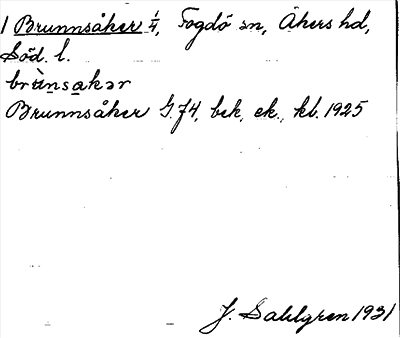 1 Brunnsåker 1/4, Fogdö sn, Åkers hd,
Söd. l.
brùnsakər
Brunnsåker G. J4, bek, ek., kb. 1925
J. Sahlgren 1931